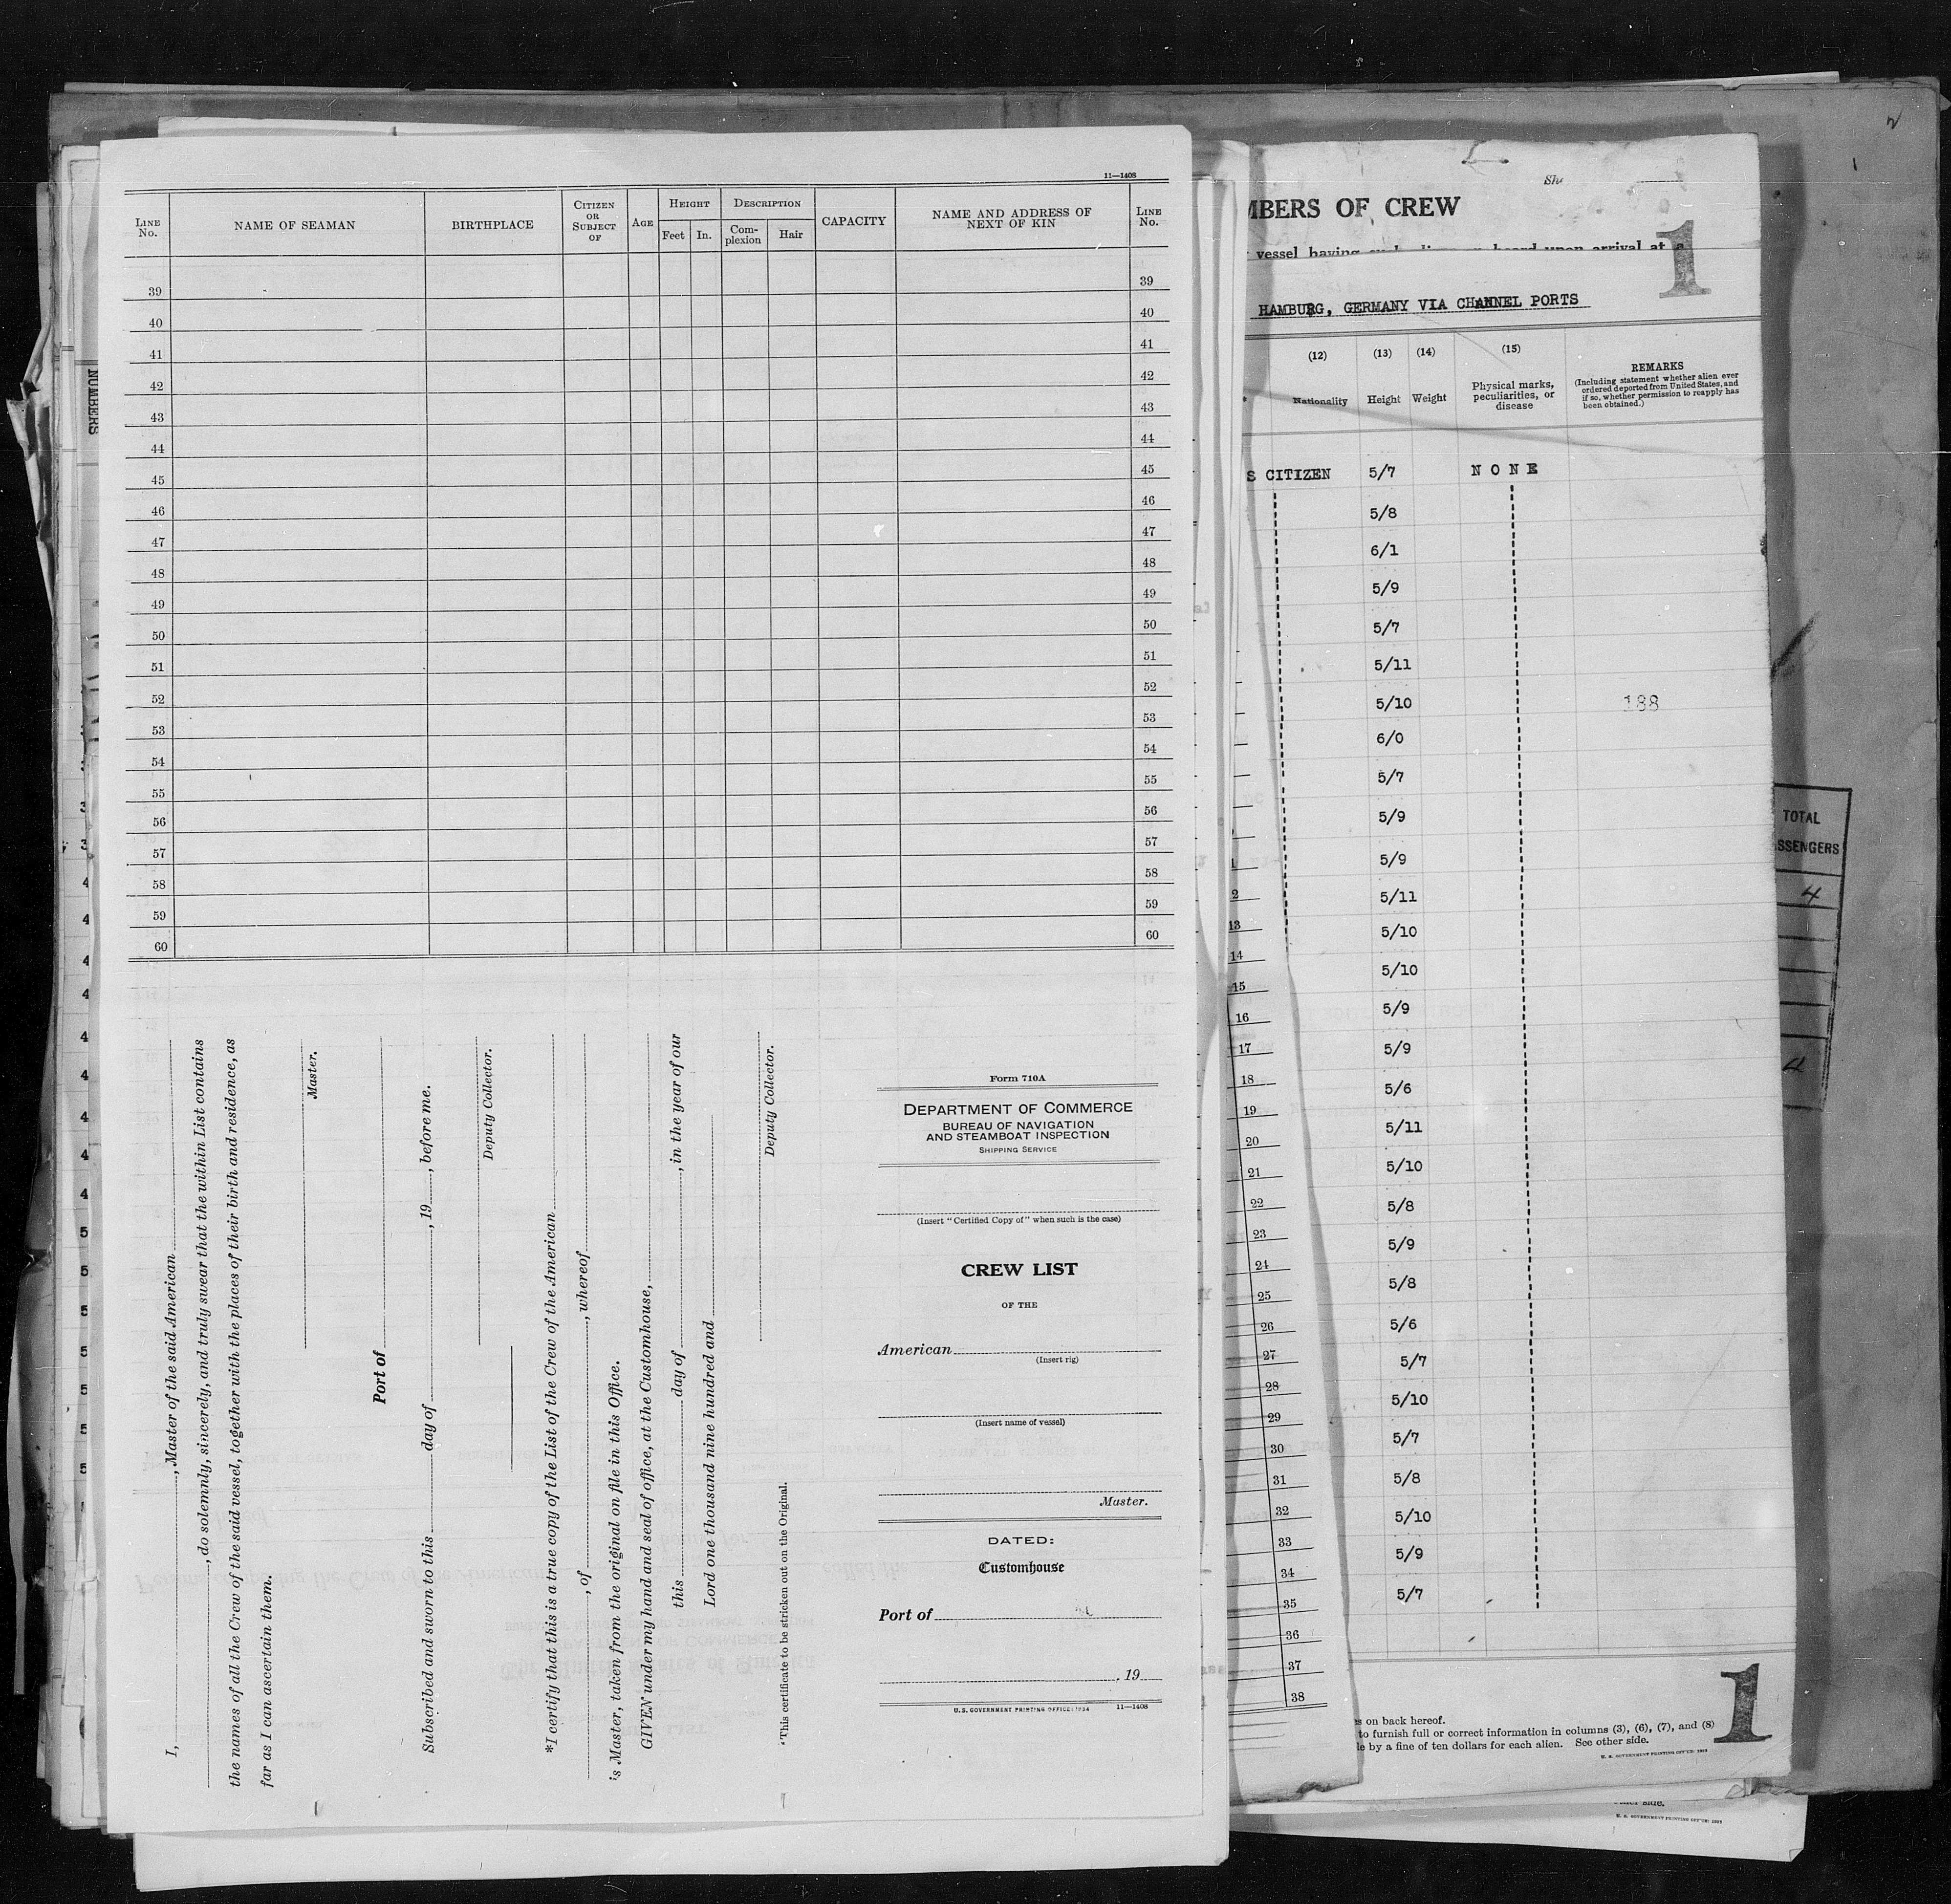 11—1408
LINE No.
NAME OF SEAMAN
BIRTHPLACE
CITIZEN OR SUBJECT OF
AGE
HEIGHT
Feet
In.
DESCRIPTION
Complexion
Hair
CAPACITY
NAME AND ADDRESS OF NEXT OF KIN
LINE No.
39 39
40 40
41 41
42 42
43 43
44 44
45 45
46 46
47 47
48 48
49 49
50 50
51 51
52 52
53 53
54 54
55 55
56 56
57 57
58 58
59 59
60 60
I, , Master of the said American
, do solemnly, sincerely, and truly swear that the within List contains
the names of all the Crew of the said vessel, together with the places of their birth and residence, as
far as I can ascertain them.
Master.
Port of
Subscribed and sworn to this day of , 19 , before me.
Deputy Collector.
*I certify that this is a true copy of the List of the Crew of the American
, of , whereof
is Master, taken from the original on file in this Office.
GIVEN under my hand and seal of office, at the Customhouse,
this day of , in the year of our
Lord one thousand nine hundred and
Deputy Collector.
*This certificate to be stricken out on the Original.
Form 710A
DEPARTMENT OF COMMERCE
BUREAU OF NAVIGATION
AND STEAMBOAT INSPECTION
SHIPPING SERVICE
(Insert "Certified Copy of" when such is the case)
CREW LIST
OF THE
American
(Insert rig)
(Insert name of vessel)
Master.
DATED:
Customhouse
Port of
, 19
U.S. GOVERNMENT PRINTING OFFICE: 1934 11—1408
MBERS OF CREW
1
vessel having upon arrival at a
HAMBURG, GERMANY VIA CHANNEL PORTS
(12)
Nationality
(13)
Height
(14)
Weight
(15)
Physical marks, peculiarities, or disease
REMARKS
(Including statement whether alien ever
ordered deported from United States, and
if so, whether permission to reapply has
been obtained.)
S CITIZEN 5/7 NONE
5/8
6/1
5/9
5/7
5/11
5/10 188
6/0
5/7
5/9
5/9
5/11
5/10
5/10
5/9
5/9
5/6
5/11
5/10
5/8
5/9
5/8
5/6
5/7
5/10
5/7
5/8
5/10
5/9
5/7
13
14
15
16
17
18
19
20
21
22
23
24
25
26
27
28
29
30
31
32
33
34
35
36
37
38
s on back hereof.
to furnish full or correct information in columns (3), (6), (7), and (8)
le by a fine of ten dollars for each alien. See other side.
1
NUMBERS
TOTAL
SSENGERS
4
4